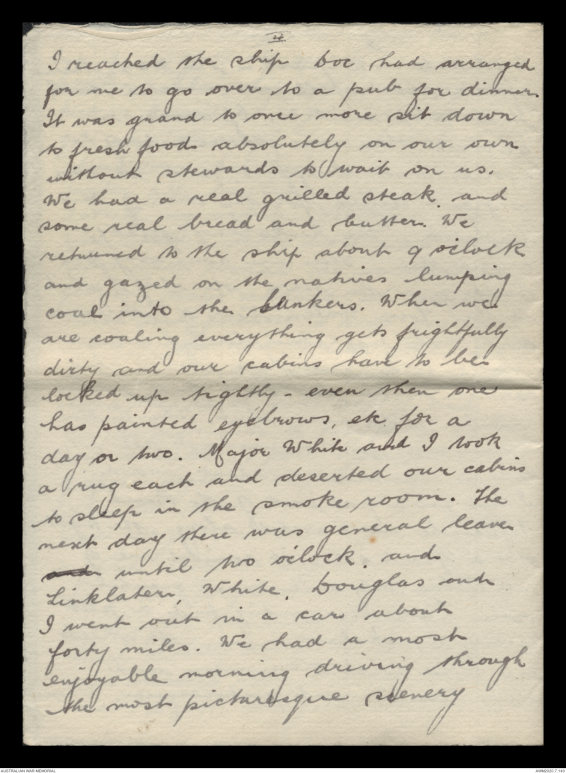 4
I reached the ship Doc had arranged
for me to go over to a pub for dinner.
It was grand to once more sit down
to fresh food absolutely on our own
without stewards to wait on us.
We had a real grilled steak and
some real bread and butter. We
returned to the ship about 9 o'clock
and gazed on the natives lumping
coal into the bunkers. When we
are coaling everything gets frightfully
dirty and our cabins have to be
locked up tightly - even then one
has painted eyebrows, etc for a
day or two. Major White and I took
a rug each and deserted our cabins
to sleep in the smoke room. The
next day there was general leave
and until two o'clock, and
Linklater, White, Douglas and
I went out in a car about
forty miles. We had a most
enjoyable morning driving through
the most picturesque scenery
AUSTRALIAN WAR MEMORIAL